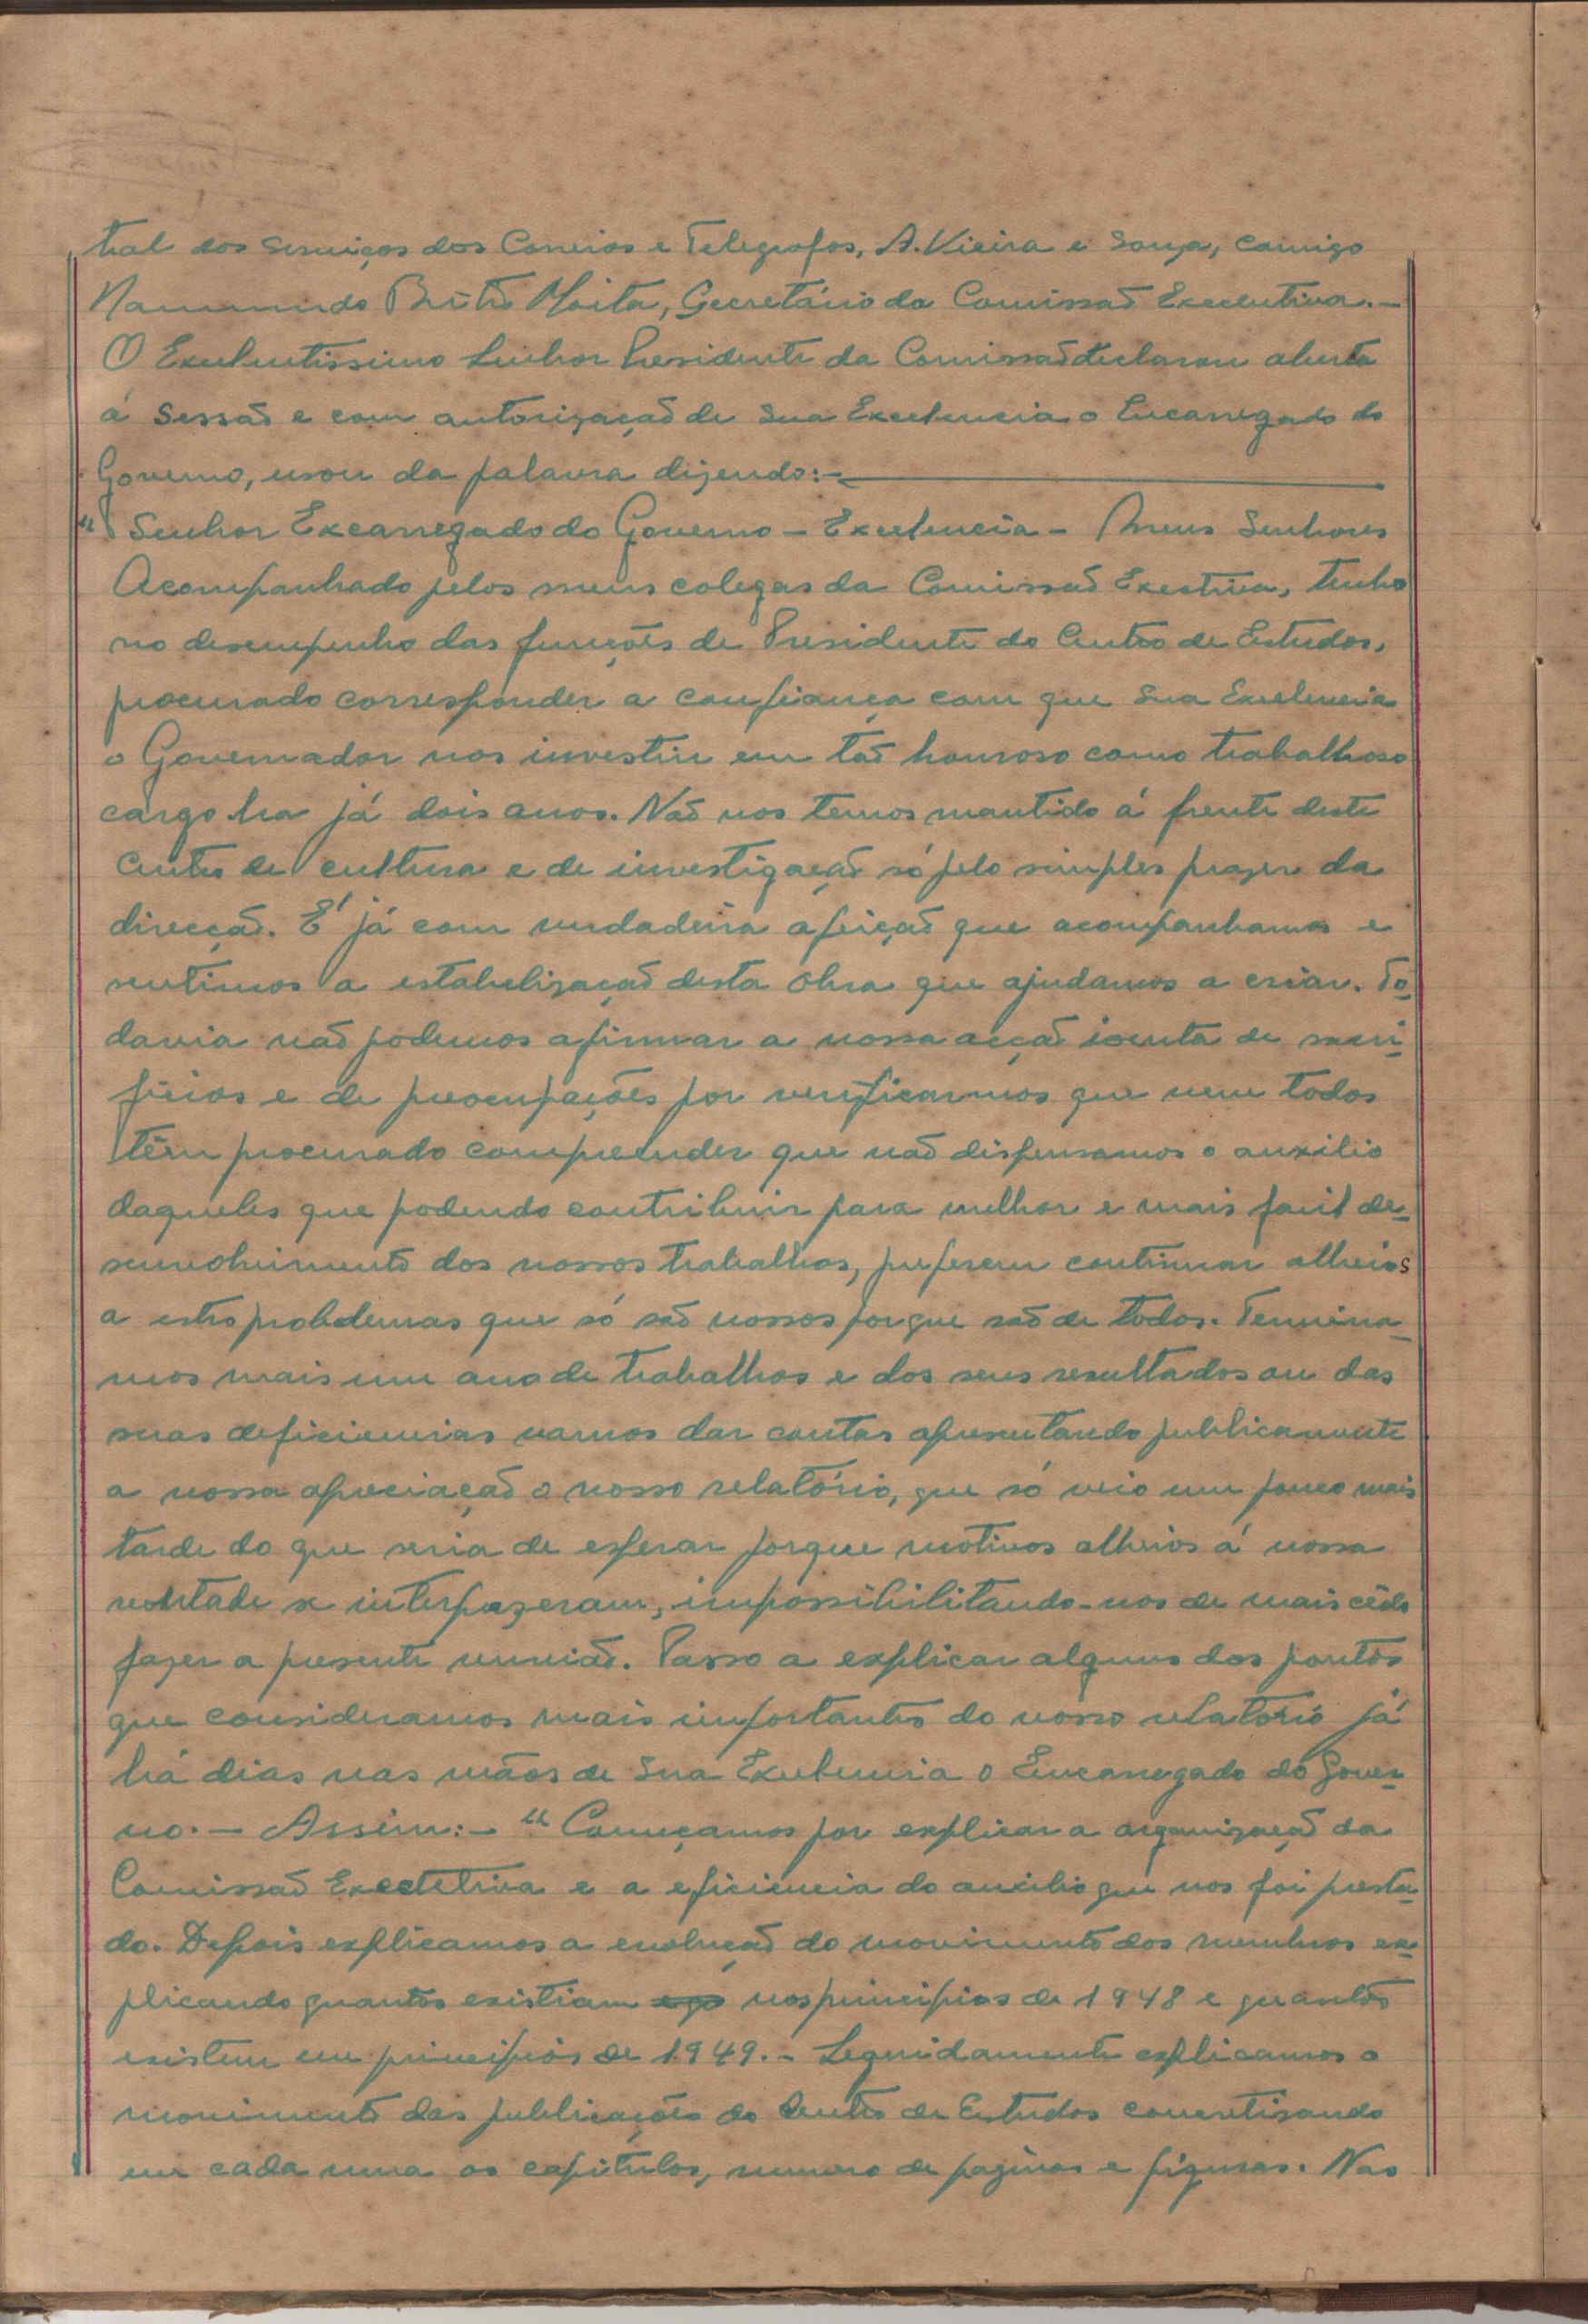 tral dos Serviços dos Correios e Telegrafos, A. Vieira e Souza, comigo
Brito Moita, Secretário da Comissaõ Executiva.-
O Excelentissimo Senhor Presidente da Comissaõ declarou aberta
á Sessaõ e com autorizaçaõ de Sua Excelencia o Encarregado do
Governo, usou da palavra dizendo:-
" Senhor Excarregado do Governo - Excelencia - Meus Senhores
Acompanhado pelos meus colegas da Comissaõ Exectiva, tenho
no desempenho das funções de Presidente do Centro de Estudos,
procurado corresponder a confiança com que Sua Excelencia
o Governador nos investiu em taõ honroso como trabalhoso
cargo ha já dois anos. Naõ nos temos mantido á frente deste
Centro de cultura e de investigaçaõ só pelo simples prazer da
direcçaõ. E' já com verdadeira afeiçaõ que acompanhamos e
sentimos a estabelizaçaõ desta obra que ajudamos a criar. To-
davia naõ podemos afirmar a nossa acçaõ isenta de sacri-
ficios e de preocupações por verificarmos que nem todos
têm procurado compreender que naõ dispensamos o auxilio
daqueles que podendo contribuir para melhor e mais facil de-
senvolvimento dos nossos trabalhos, preferem continuar alheios
a estes problemas que só saõ nossos porque saõ de todos. Termina-
mos mais um ano de trabalhos e dos seus resultados ou das
suas deficiencias vamos dar contas apresentando publicamente
a nossa apreciaçaõ o nosso relatório, que só veio um pouco mais
tarde do que seria de esperar porque motivos alheios á nossa
vontade se interpozeram, impossibilitando-nos de mais cêdo
fazer a presente reuniaõ. Passo a explicar alguns dos pontos
que consideramos mais importantes do nosso relatorio já
há dias nas mãos de Sua Excelencia o Encarregado do Gover-
no.- Assim:- " Começamos por explicar a organizaçaõ da
Comissaõ Executiva e a eficiencia do auxilio que nos foi presta-
do. Depois explicamos a evoluçaõ do movimento dos membros ex-
plicando quantos existiam nos principios de 1948 e quantos
existem em principios de 1949.- Seguidamente explicamos o
movimento das publicações do Centro de Estudos concretizando
em cada uma os capitulos, numero de paginas e figuras. Nas